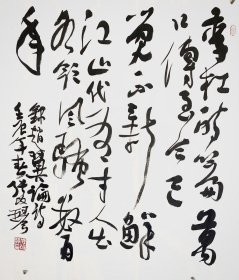 李杜詩篇萬
口傳至今已
覺不新鮮
江山代有才人出
各領風騷數百
年
錄趙翼論詩
壬辰年春